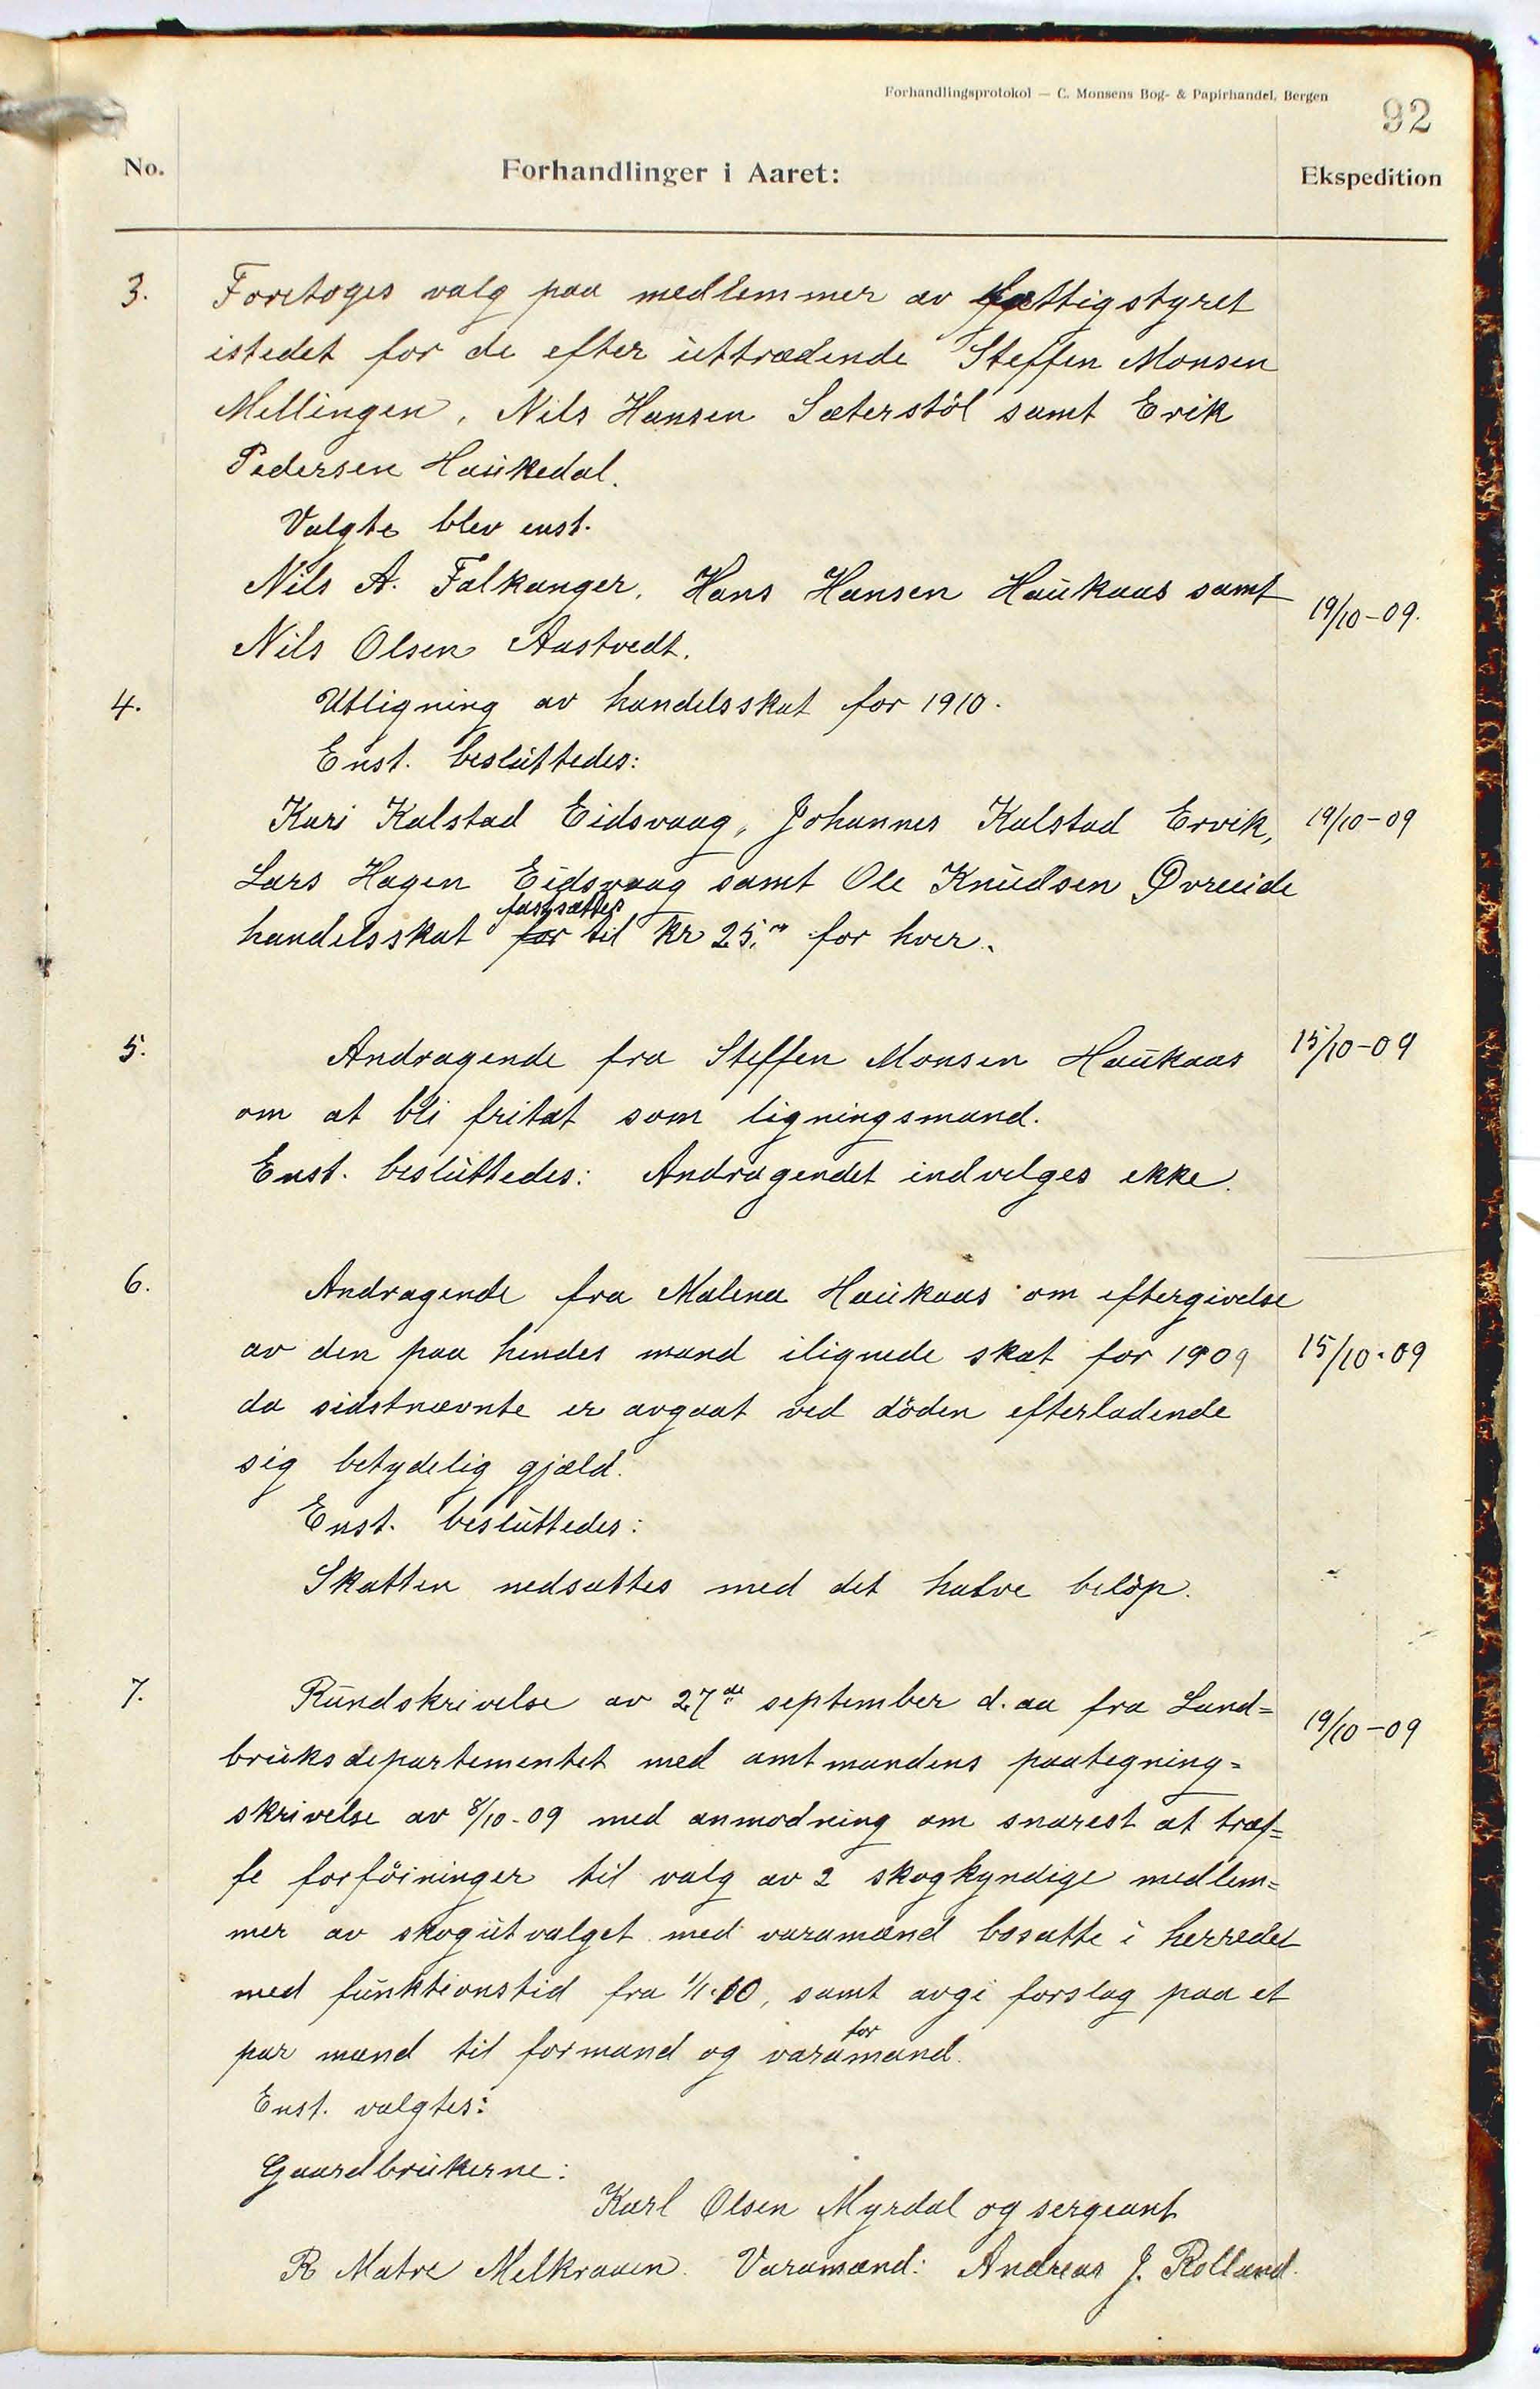 Forhandlingsprotokol — C. Monsens Bog- & Papirhandel, Bergen
92
No.
Forhandlinger i Aaret:
Ekspedition
3.
Foretoges valg paa medlemmer av fattigstyret
istedet for de efter uttrædende Steffen Monsen
Mellingen, Nils Hansen Sæterstöl samt Erik
Pedersen Haukedal.
Valgte blev enst.
Nils A. Falkanger, Hans Hansen Haukaas samt
19/10-09.
Nils Olsen Aastvedt.
4.
Utligning av handelsskat for 1910.
Enst. besluttedes:
Kari Kalstad Eidsvaag, Johannes Kalstad Ervik,
19/10-09
Lars Hagen Eidsvaag samt Ole Knudsen Øvreeide
fastsættes
handelsskat for til kr 25,- for hver.
5.
Andragende fra Steffen Monsen Haukaas
15/10-09
om at bli fritat som ligningsmand.
Enst. besluttedes: Andragendet indvilges ikke.
6.
Andragende fra Malena Haukaas om eftergivelse
av den paa hendes mand ilignede skat for 1909
15/10-09
da sidstnævnte er avgaat ved döden efterladende
sig betydelig gjæld.
Enst. besluttedes:
Skatten nedsættes med det halve belöp.
7.
Rundskrivelse av 27de september d. aa fra Land=
19/10-09
bruksdepartementet med amtmandens paategning=
skrivelse av 8/10-09 med anmodning om snarest at træf=
fe forföininger til valg av 2 skogkyndige medlem=
mer av skogutvalget med varamænd bosatte i herredet
med funktionstid fra 1/1.10, samt avgi forslag paa et
for
par mænd til formand og varamand.
Enst. valgtes:
Gaardbrukerne:
Karl Olsen Myrdal og sergeant
R Matre Melkraaen. Varamænd: Andreas J. Rolland.